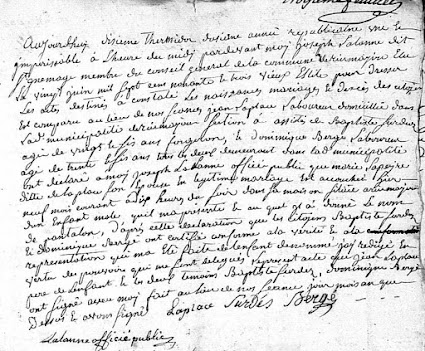 Aujourdhuy dixieme Thermidor dosieme année republicaine une &
imperissible à l'heure du midy pardevant moy joseph Lalanne dit
membre du conseil general de la commune de Elu
Le vingt juin mil sept cens nonante & trois vieux stile pour dresser
Les actes destinés a constate les naissances mariages & décès des citoyen
Est comparu au lieu de nos seances jean Laplau Laboureur domicilié dans
Lad. municipalité section a assisté de Baptiste Surdes
agé de ans forgeron & Dominique Bergé Laboureur
agé de trente ans tous les deux demeurant dans la d. municipalité
ont declaré a moy joseph Lalanne officié public que marie
ditte de laplau son Epouse en legitime mariage est accouchée hier
neuf mois courant a heures du soir dans sa maison située
d'un Enfant male, quil ma presenté & au quel il a donné Le nom
de pantalon, D'après cette declaration que les citoyens Baptiste Surdes
& Dominique Bergé ont certifié conforme a la vérité & a la
representation qui ma été faite de lenfant denommé jay redigé En
vertu de pouvoirs qui me sont delegués le present acte que jean Laplau
pere de lenfant & les deux temoins Baptiste Surdes, dominique Bergé
ont signé avec moy fait au lieu de nos seance jour mois an que
Dessus & avons signé Laplau Surdés Bergé
Lalanne officié public